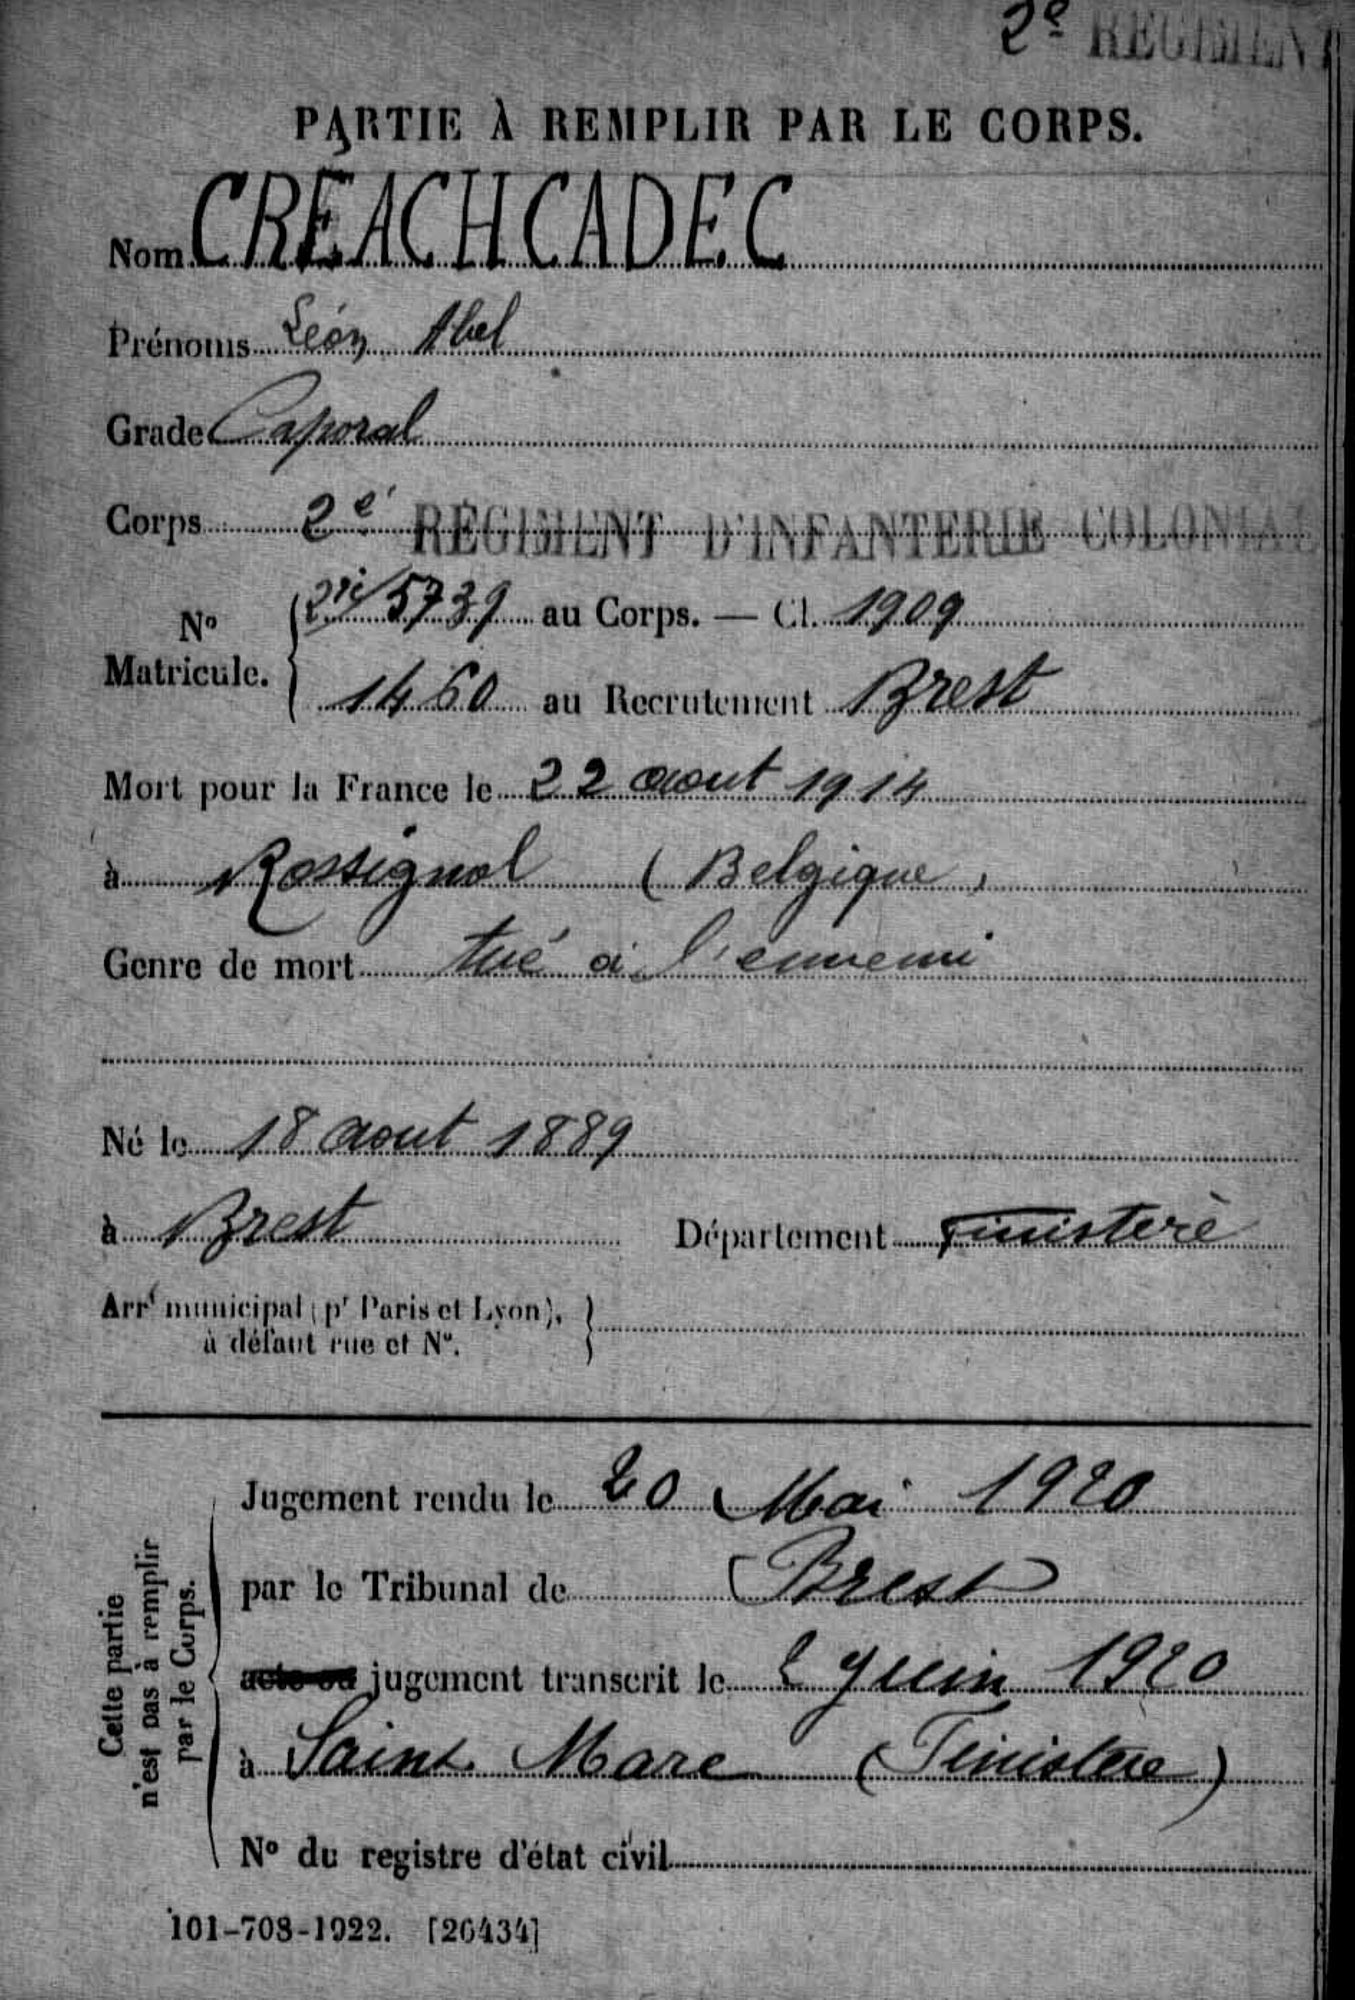 2e REGIMENT
PARTIE À REMPLIR PAR LE CORPS.
Nom CRÉACHCADEC
Prénoms Léon Abel
Grade Caporal
Corps 2e RÉGIMENT D'INFANTERIE COLONIAL
No Matricule. 5739 au Corps. — Cl. 1909
1460 au Recrutement Brest
Mort pour la France le 22 aout 1914
à Rossignol (Belgique)
Genre de mort tué à l'ennemi
Né le 18 aout 1889
à Brest Département Finistère
Arrt municipal (pr Paris et Lyon),
à défaut rue et No.
Cette partie
n'est pas à remplir
par le Corps.
Jugement rendu le 20 Mai 1920
par le Tribunal de Brest
acte ou jugement transcrit le 2 Juin 1920
à Saint Marc (Finistère)
No du registre d'état civil
101-708-1922. [26434]